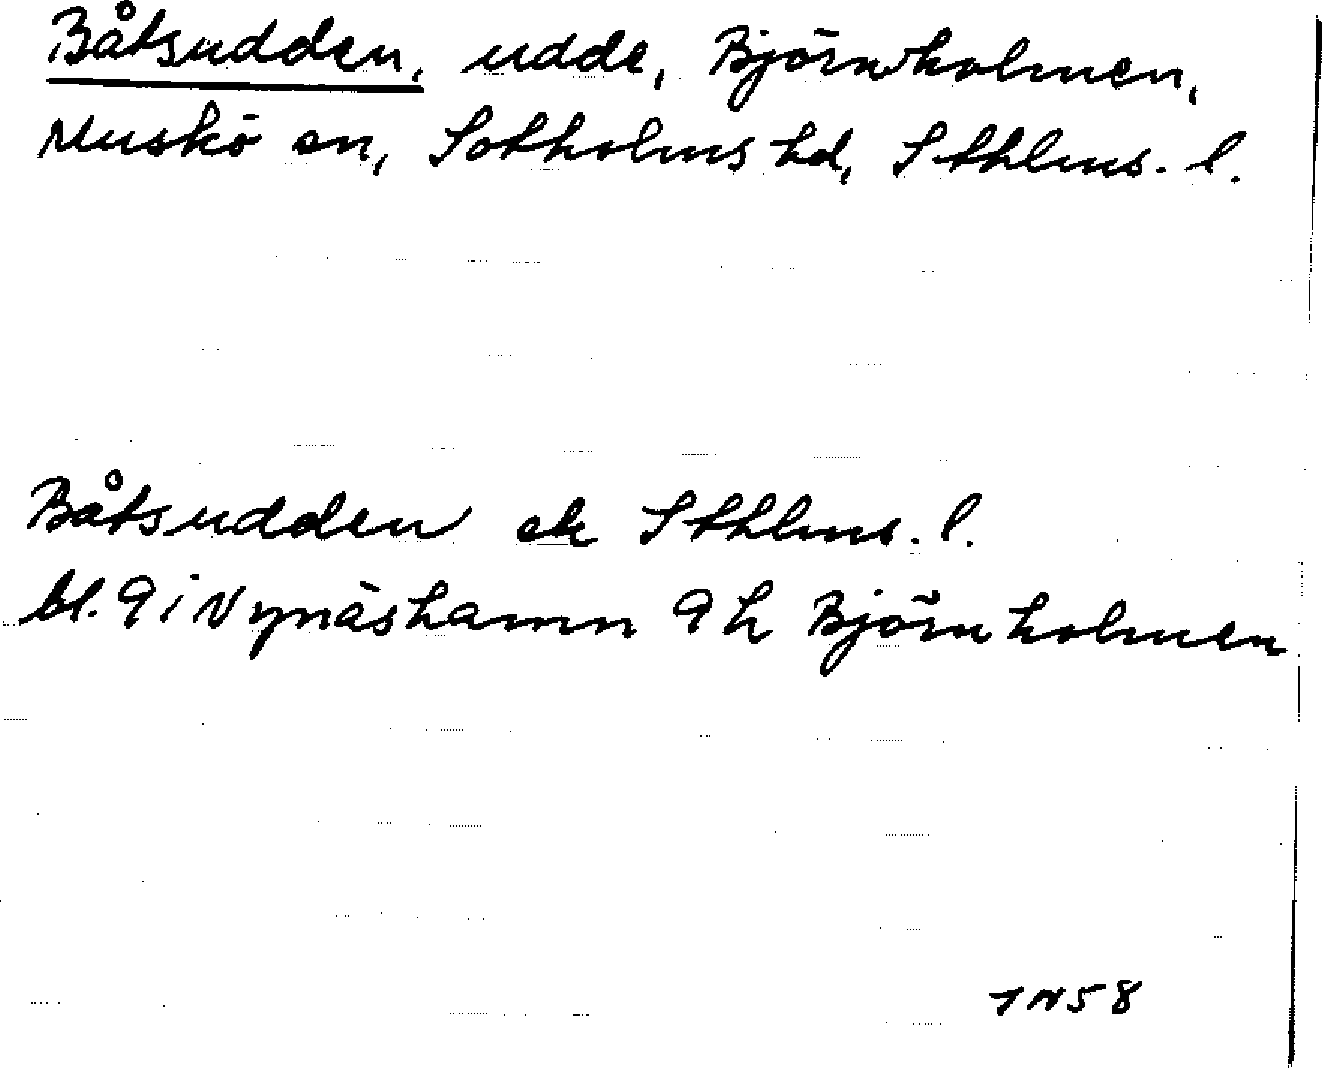 Båtsudden, udde, Björnholmen,
Muskö sn, Sotholms hd, Sthlms. l.
Båtsudden ek Sthlms. l.
bl. 9 i Nynäshamn 9 h Björnholmen
IN58